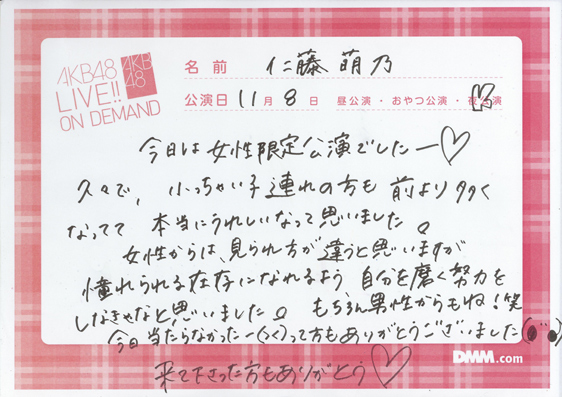 AKB48
LIVE!!
ON DEMAND
AKB
48
名前 仁藤萌乃
公演日 11月8日 昼公演・おやつ公演・夜公演
今日は女性限定公演でしたー♡
久々で、小っちゃい子連れの方も前より多く
なってて 本当にうれしいなって思いました。
女性からは、見られ方が違うと思いますが
憧れられる存在になれるよう 自分を磨く努力を
しなきゃなと思いました。 もちろん男性からもね!笑
今日当たらなかったー(>_<)って方もありがとうございました
来て下さった方もありがとう♡
DMM.com